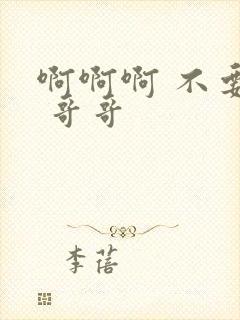 啊啊啊 不要
哥哥
李蓓